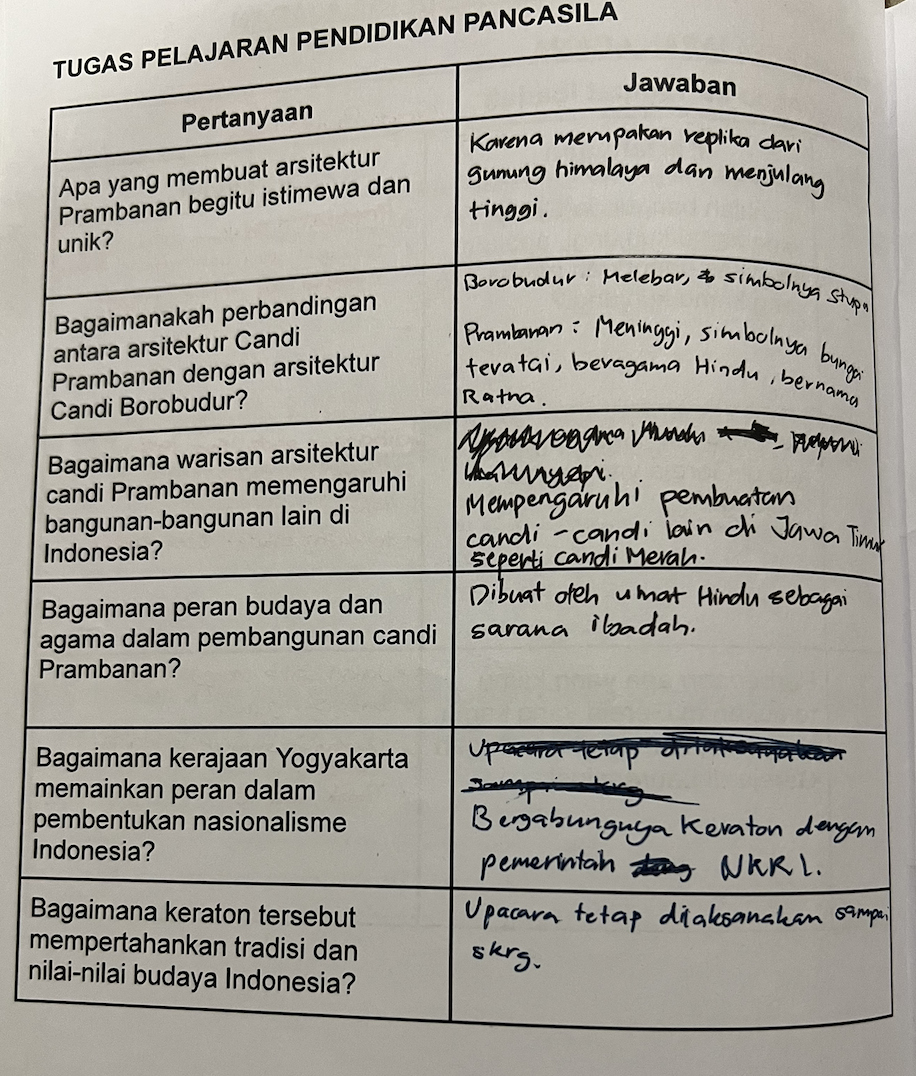 TUGAS PELAJARAN PENDIDIKAN PANCASILA
Pertanyaan
Jawaban
Apa yang membuat arsitektur
Prambanan begitu istimewa dan
unik?
Karena merupakan replika dari
gunung himalaya dan menjulang
tinggi.
Bagaimanakah perbandingan
antara arsitektur Candi
Prambanan dengan arsitektur
Candi Borobudur?
Borobudur : Melebar, simbolnya stupa
Prambanan : Meninggi, simbolnya bunga
teratai, beragama Hindu, bernama
Ratna.
Bagaimana warisan arsitektur
candi Prambanan memengaruhi
bangunan-bangunan lain di
Indonesia?
Mempengaruhi pembuatan
candi-candi lain di Jawa Timur
seperti candi Merah.
Bagaimana peran budaya dan
agama dalam pembangunan candi
Prambanan?
Dibuat oleh umat Hindu sebagai
sarana ibadah.
Bagaimana kerajaan Yogyakarta
memainkan peran dalam
pembentukan nasionalisme
Indonesia?
Upacara tetap
Bergabungnya Keraton dengan
pemerintah NKRI.
Bagaimana keraton tersebut
mempertahankan tradisi dan
nilai-nilai budaya Indonesia?
Upacara tetap dilaksanakan sampai
skrg.